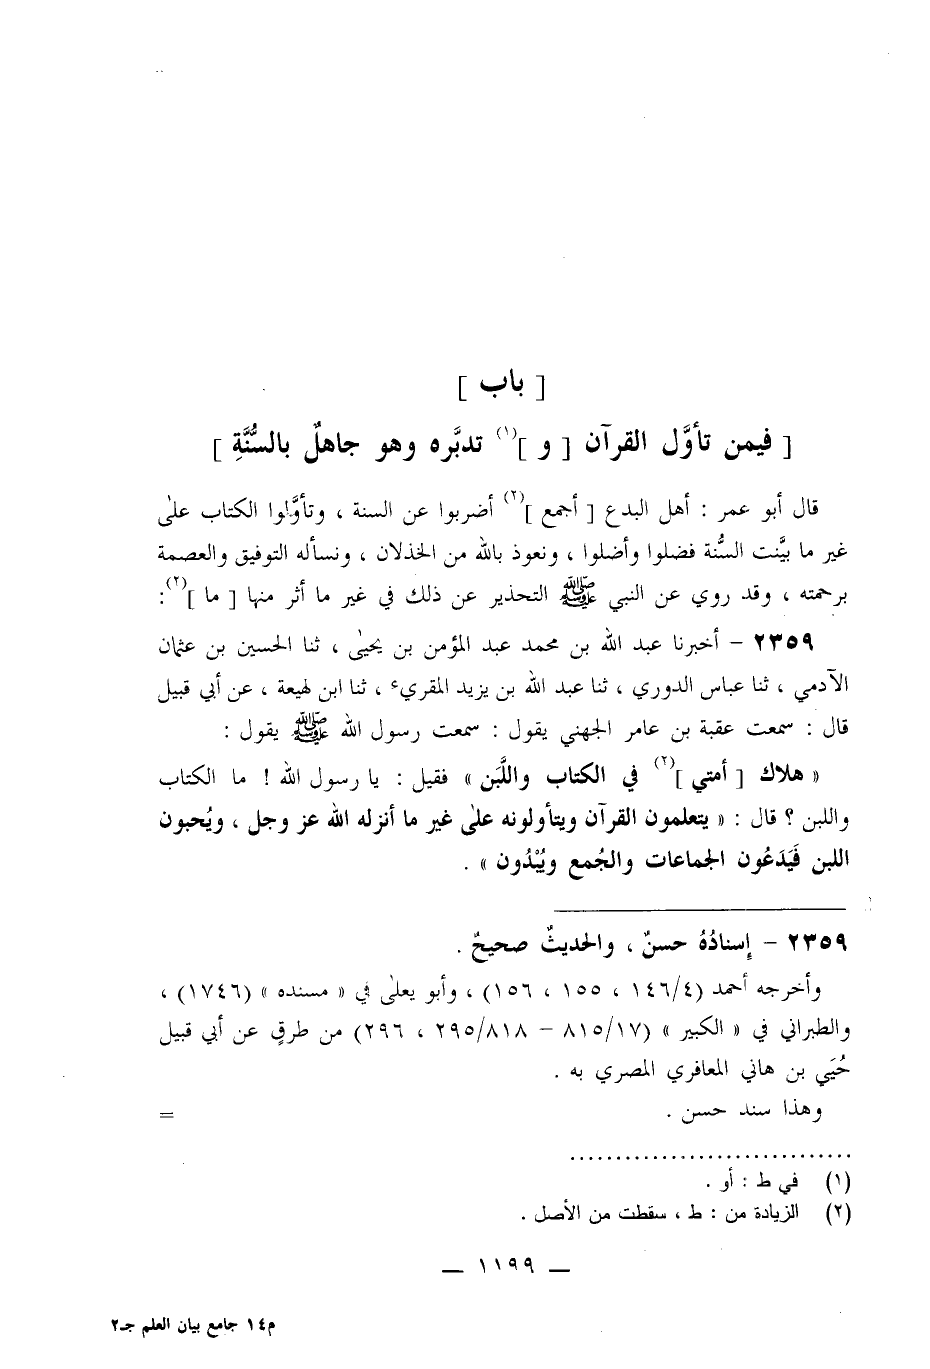 [ باب ]
[ فيمن تأوَّل القرآن [ و ](١) تدبَّره وهو جاهلٌ بالسُّنَّةِ ]
قال أبو عمر : أهل البدع [ أجمع ](٢) أضربوا عن السنة ، وتأوَّلوا الكتاب علىٰ
غير ما بيَّنت السنُّة فضلوا وأضلوا ، ونعوذ بالله من الخذلان ، ونسأله التوفيق والعصمة
برحمته ، وقد روي عن النبي ﷺ التحذير عن ذلك في غير ما أثر منها [ ما ](٢):
٢٣٥٩ – أخبرنا عبد الله بن محمد عبد المؤمن بن يحيىٰ ، ثنا الحسين بن عثمان
الآدمي ، ثنا عباس الدوري ، ثنا عبد الله بن يزيد المقريء ، ثنا ابن لهيعة ، عن أبي قبيل
قال : سمعت عقبة بن عامر الجهني يقول : سمعت رسول الله ﷺ يقول :
« هلاك [ أمتي ](٢) في الكتاب واللَّبَن » فقيل : يا رسول الله ! ما الكتاب
واللبن ؟ قال : « يتعلمون القرآن ويتأولونه علىٰ غير ما أنزله الله عز وجل ، ويُحبون
اللبن فَيَدَعُون الجماعات والجُمع ويَبْدُون » .
٢٣٥٩ – إسنادُهُ حسنٌ ، والحديثُ صحيحٌ .
وأخرجه أحمد (١٤٦/٤ ، ١٥٥ ، ١٥٦) ، وأبو يعلىٰ في « مسنده » (١٧٤٦) ،
والطبراني في « الكبير » (٨١٥/١٧ – ٢٩٥/٨١٨ ، ٢٩٦) من طرقٍ عن أبي قبيل
حُيَي بن هاني المعافري المصري به .
وهذا سند حسن . =
(١) في ط : أو .
(٢) الزيادة من : ط ، سقطت من الأصل .
— ١١٩٩ —
م١٤ جامع بيان العلم جـ٢